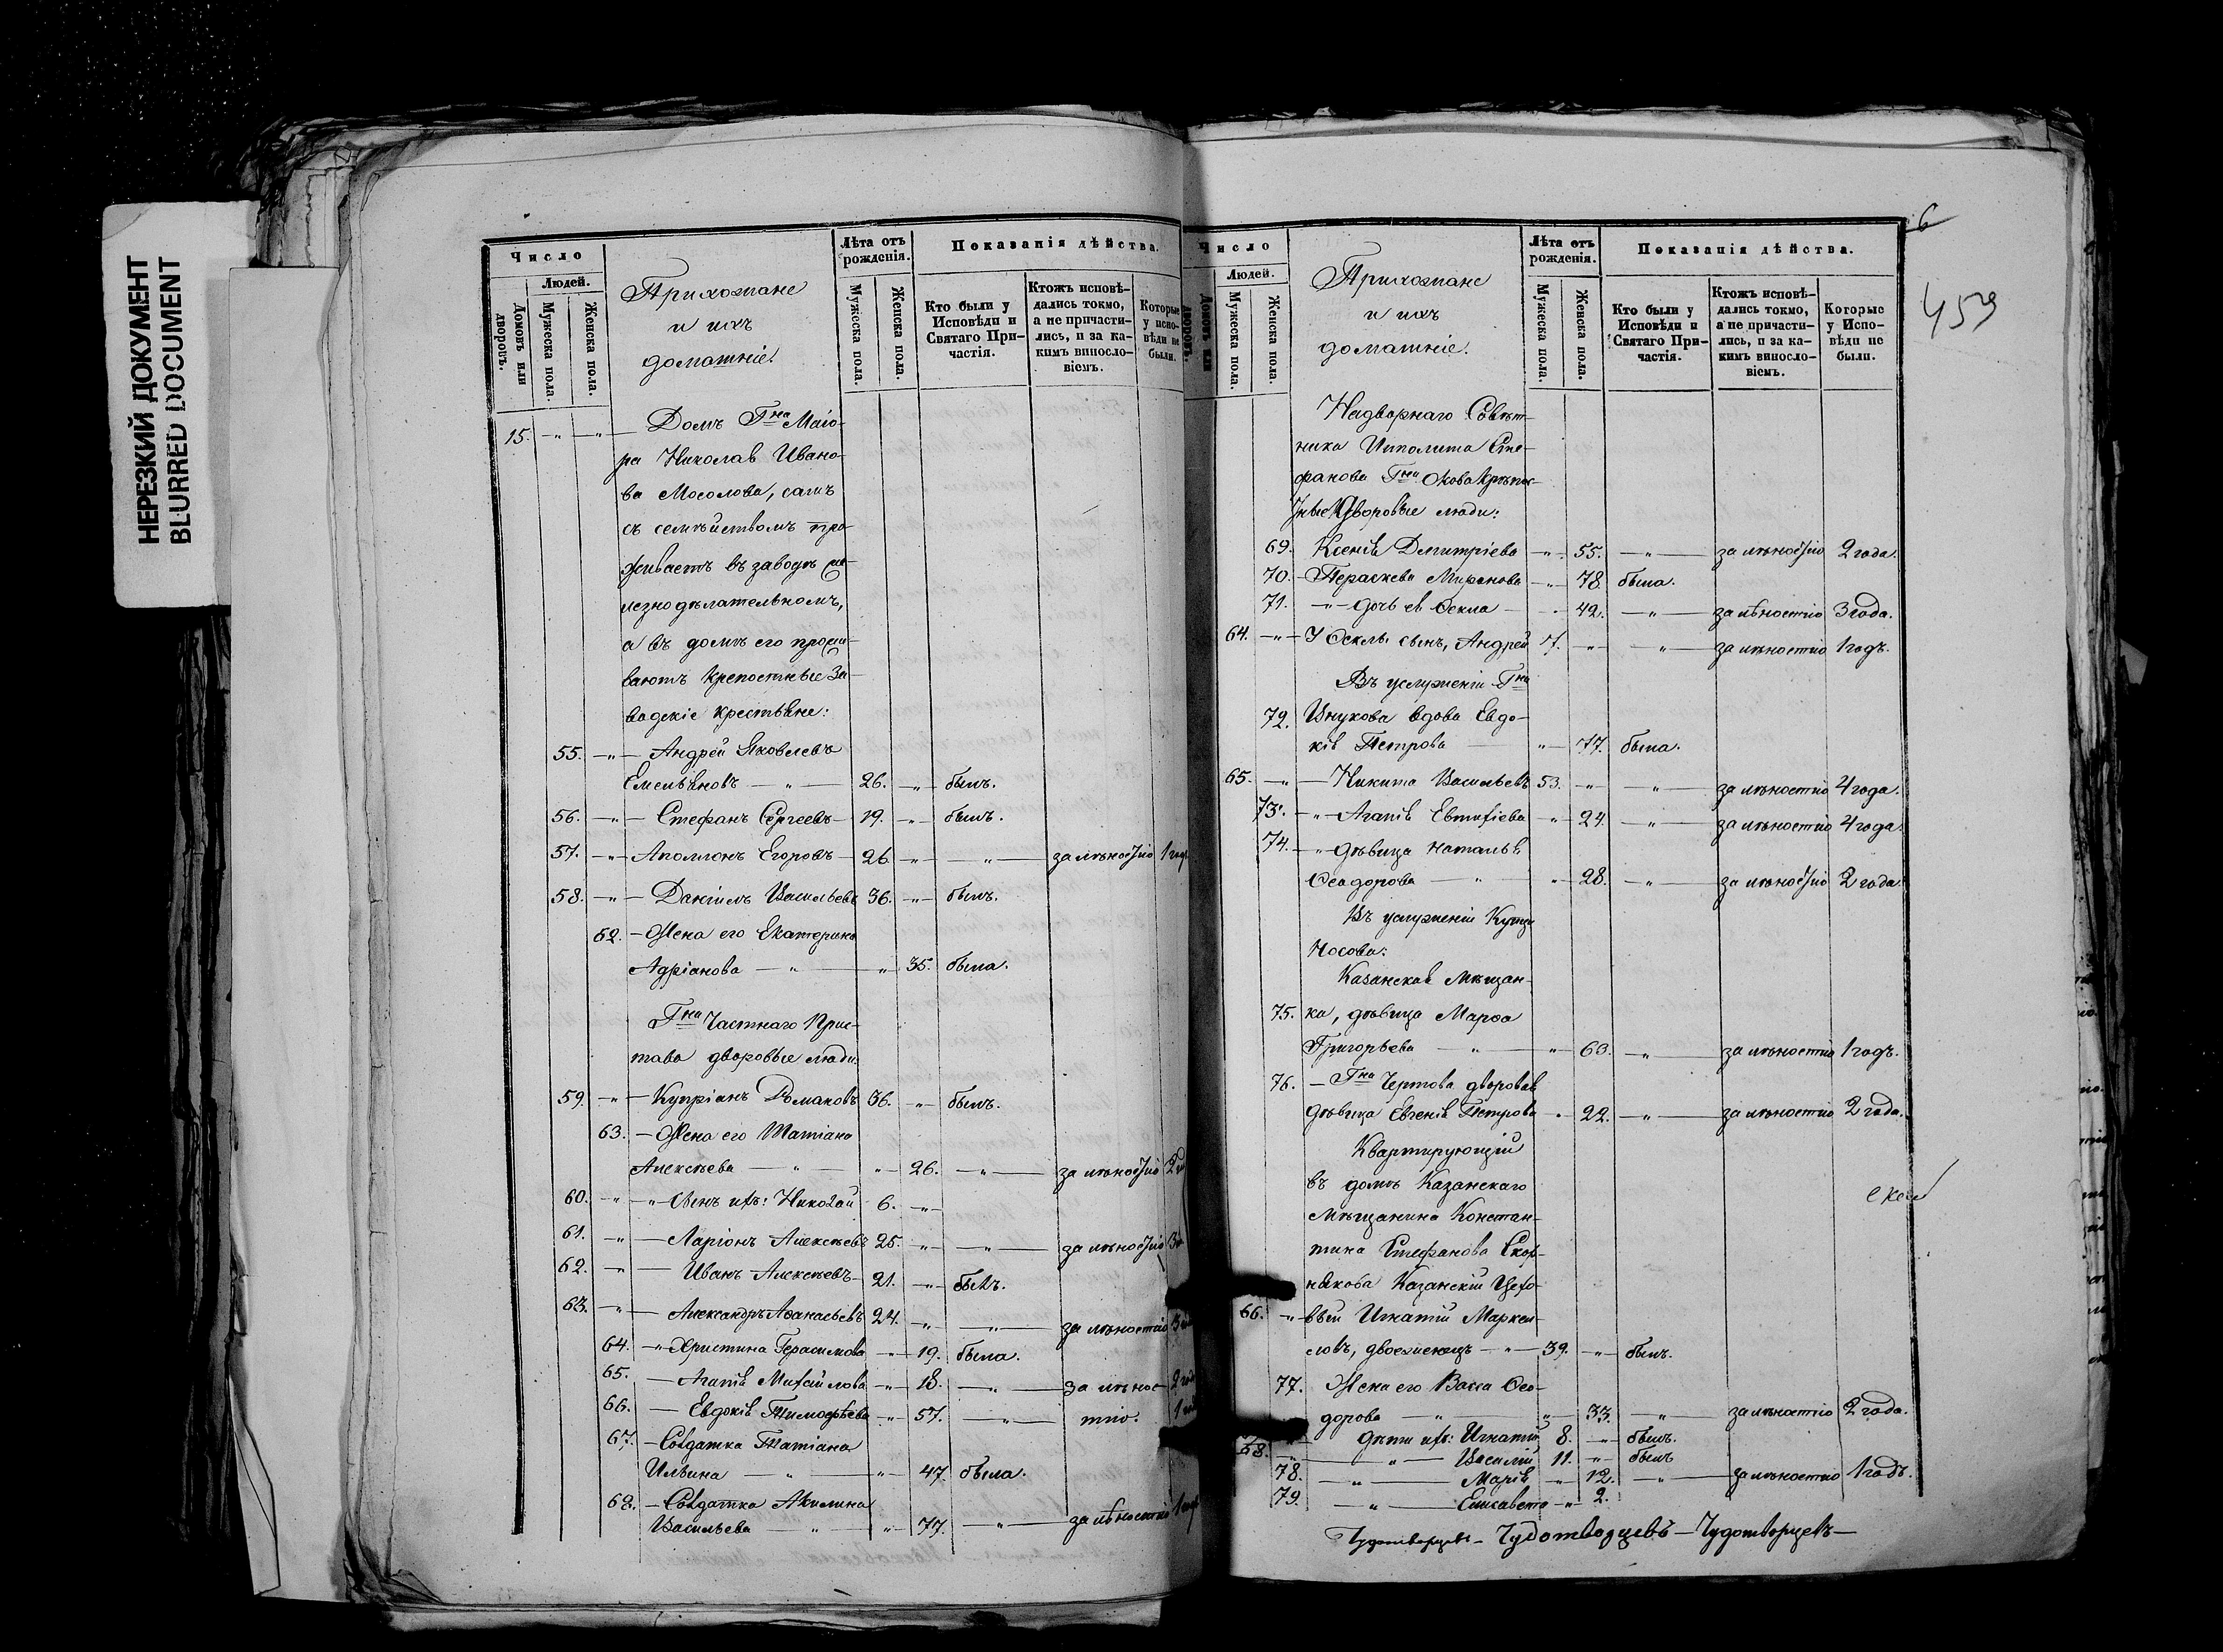 НЕРЕЗКИЙ ДОКУМЕНТ
BLURRED DOCUMENT
Число
Людей.
Домовъ или дворовъ.
Мужеска пола.
Женска пола.
Прихожане
и ихъ
домашніе.
Лѣта отъ рожденія.
Мужеска пола.
Женска пола.
Показанія дѣйства.
Кто были у Исповѣди и Святаго Причастія.
Ктожъ исповѣдались токмо, а не причастились, и за какимъ винословіемъ.
Которые у исповѣди не были.
15. —„— —„— Домъ Гна Маіо-
ра Николая Ивано-
ва Мосолова, самъ
съ семѣйствомъ про-
живаетъ въ заводѣ же-
лезнодѣлательномъ,
а въ домѣ его прожи-
ваютъ крепостные За-
водскіе крестьяне:
55. —„— Андрей Яковлевъ
Емельяновъ —„— 26. —„— былъ.
56. —„— Стефанъ Сергеевъ — 19. —„— былъ.
57. —„— Аполлонъ Егоровъ — 26. —„— —„— за лѣностію 1 год
58. —„— Даніилъ Васильевъ 36. —„— былъ.
62. — Жена его Екатерина
Адріанова —„— „ 35. была.
Гна Частнаго Прис-
тава дворовые люди
59. —„— Купріанъ Романовъ 36. —„— былъ.
63. — Жена его Татіана
Алексѣева —„— „ 26. —„— за лѣностію 2
60. —„— „ — Сынъ ихъ: Николай 6. —„—
61. —„— Ларіонъ Алексѣевъ 25. —„— —„— за лѣностію 3
62. —„— Иванъ Алексѣевъ — 21. —„— былъ.
63. —„— Александръ Аѳанасьевъ 24. —„— —„— за лѣностію 3
64. —„— Христина Герасимова —„— 19. была.
65. — Агапія Михайлова —„— 18. —„— за лѣнос- 2 год
66. — Евдокія Тимофѣева —„— 57. —„— тію. 1
67. — Солдатка Татіана
Ильина —„— —„— 47. была.
68. — Солдатка Акилина
Васильева —„— „ 77. —„— за лѣностію 1 год
6
459
Число
Людей.
Домовъ или дворовъ.
Мужеска пола.
Женска пола.
Прихожане
и ихъ
домашніе.
Лѣта отъ рожденія.
Мужеска пола.
Женска пола.
Показанія дѣйства.
Кто были у Исповѣди и Святаго Причастія.
Ктожъ исповѣдались токмо, а не причастились, и за какимъ винословіемъ.
Которые у Исповѣди не были.
Надворнаго Совѣт-
ника Ипполита Сте-
фанова Гна
дворовые люди:
69. Ксенія Дмитріева —„— 55. —„— за лѣностію 2 года.
70. — Параскева Миронова —„— 78. была.
71. —„— дочь ея Ѳекла — 42. —„— за лѣностію 3 года.
64. —„— У Ѳеклы сынъ, Андрей 7. —„— „ за лѣностію 1 годъ.
Въ услуженіи Гна
72. Внукова вдова Евдо-
кія Петрова „ 77. была.
65. —„— Никита Васильевъ 53. —„— „ за лѣностію 4 года.
73. —„— Агапія Евтихіева „ 24. —„— за лѣностію 4 года.
74. —„— дѣвица Наталья
Ѳеодорова —„— „ 28. —„— за лѣностію 2 года.
Въ услуженіи Купца
Носова:
Казанская Мѣщан-
75. ка, дѣвица Марѳа
Григорьева —„— „ 63. —„— за лѣностію 1 годъ.
76. — Гна Чертова дворовая
дѣвица Евгенія Петрова „ 22. —„— за лѣностію 2 года.
Квартирующій
въ домѣ Казанскаго
Мѣщанина Констан-
тина Стефанова Скор-
някова Казанскій Цехо-
66. —„— вый Игнатій Маркел-
ловъ, двоеженецъ —„— 39. —„— былъ.
77. Жена его Васса Ѳео-
дорова —„— „ 33. —„— за лѣностію 2 года.
„ дѣти ихъ: Игнатій 8. —„— былъ.
68. „ —„— Василій 11. „ былъ
78. —„— Марія „ 12. —„— за лѣностію 1 годъ.
79. —„— Елисавета —„— 2.
Чудотворцевъ — Чудотворцевъ — Чудотворцевъ —